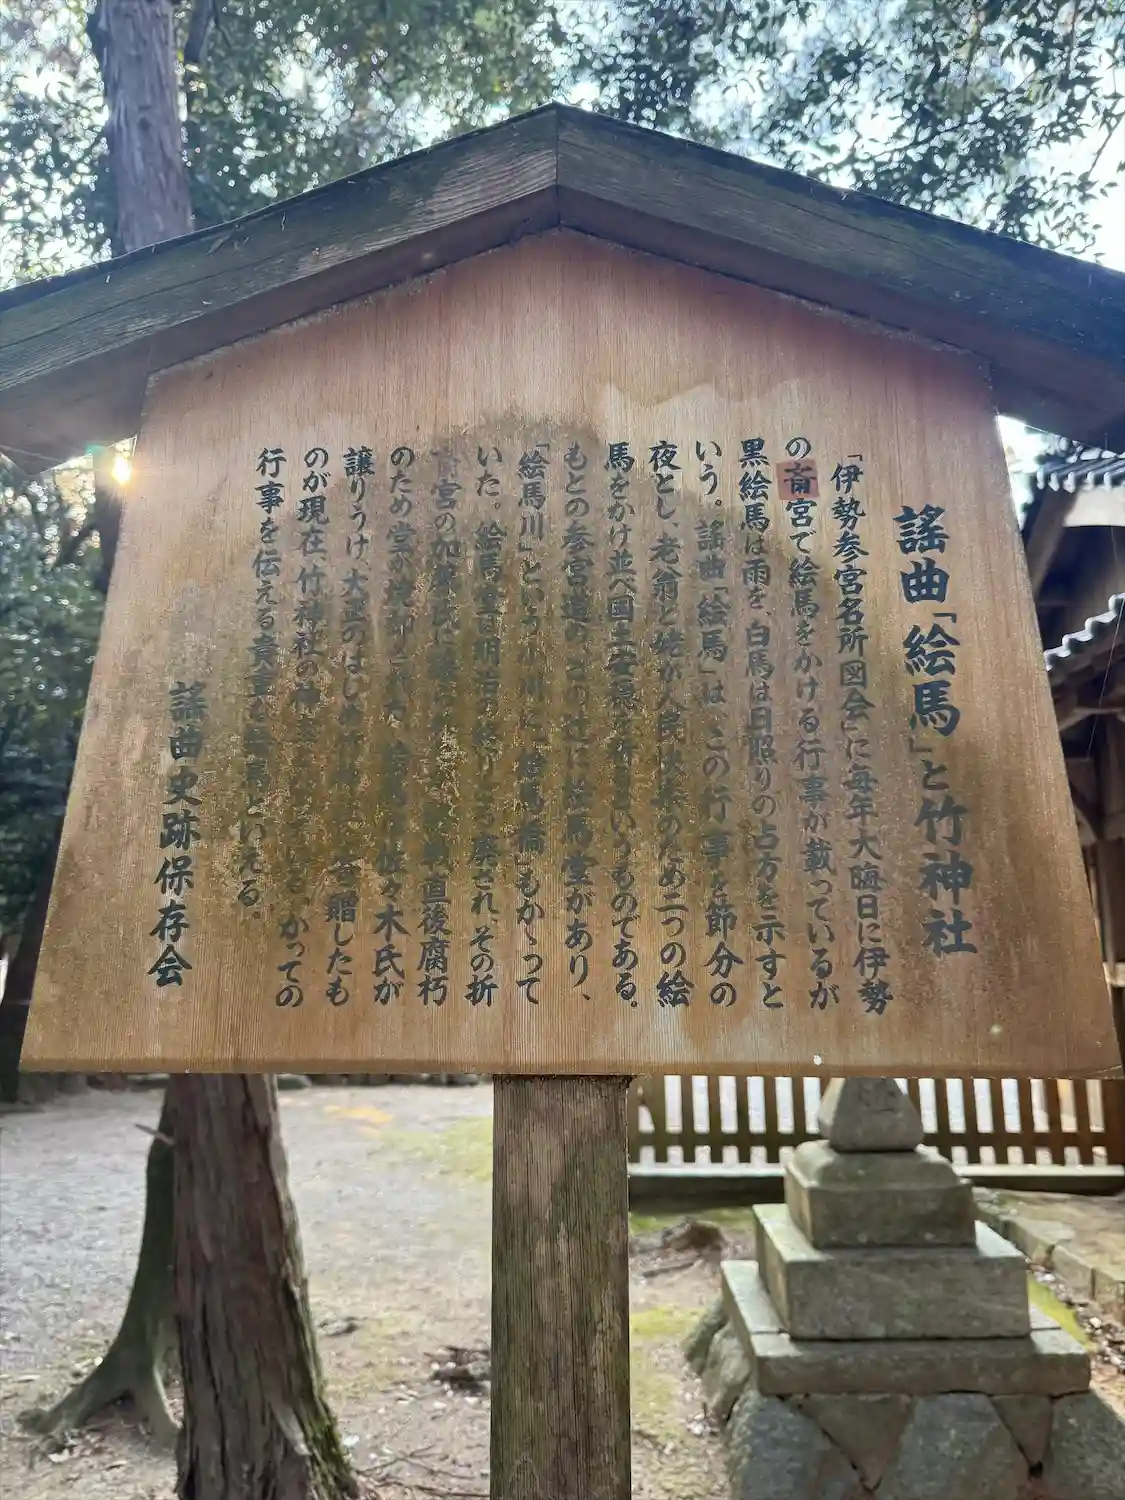 謡曲「絵馬」と竹神社
「伊勢参宮名所図会」に毎年大晦日に伊勢
の斎宮で絵馬をかける行事が載っているが
黒絵馬は雨を、白馬は日照りの占方を示すと
いう。謡曲「絵馬」は、この行事を節分の
夜とし、老翁と姥が人民快楽のため二つの絵
馬をかけ並べ国土安穏を祈るというものである。
もとの参宮道の、この辻に絵馬堂があり、
「絵馬川」という小川に「絵馬橋」もかゝって
いた。絵馬堂は明治の終りごろ廃され、その折
斎宮の加藤氏に 直後腐朽
のため堂が売却され 佐々木氏が
譲りうけ、大 のはじめ竹神社に寄贈したも
のが現在、竹神社の神 かっての
行事を伝える貴重な絵馬といえる。
謡曲史跡保存会